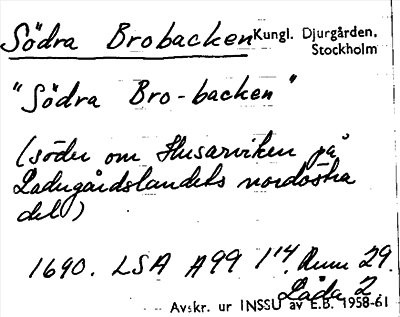 Södra Brobacken Kungl. Djurgården.
Stockholm
"Södra Bro-backen"
(söder om Husarviken på
Ladugårdslandets nordöstra
del)
1690. LSA A99 1'4. Rum 29.
Låda 2.
Avskr. ur INSSU av E.B. 1958-61